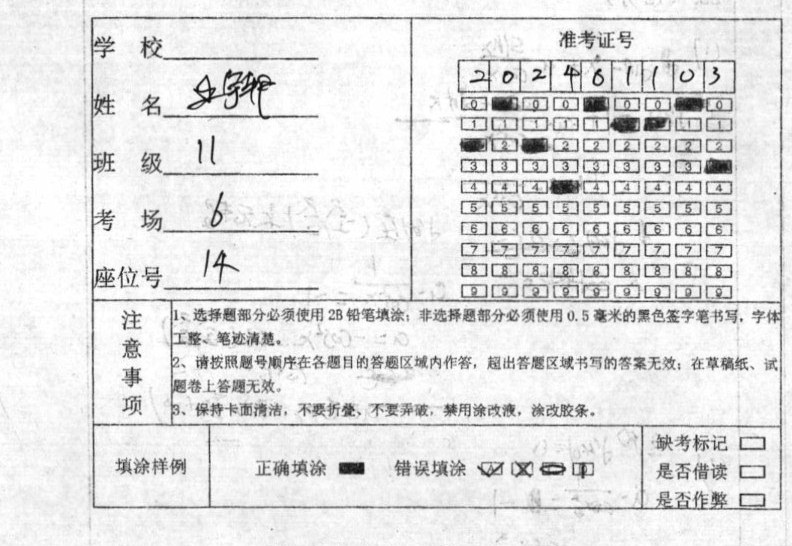 学 校
准考证号
2 0 2 4 0 1 1 0 3
姓 名
班 级 11
考 场 6
座位号 14
0 0 0 0 0 0
1 1 1 1 1 1 1
2 2 2 2 2 2 2
3 3 3 3 3 3 3 3
4 4 4 4 4 4 4 4
5 5 5 5 5 5 5 5 5
6 6 6 6 6 6 6 6 6
7 7 7 7 7 7 7 7 7
8 8 8 8 8 8 8 8 8
9 9 9 9 9 9 9 9 9
注意事项
1、选择题部分必须使用 2B 铅笔填涂；非选择题部分必须使用 0.5 毫米的黑色签字笔书写，字体
工整、笔迹清楚。
2、请按照题号顺序在各题目的答题区域内作答，超出答题区域书写的答案无效；在草稿纸、试
题卷上答题无效。
3、保持卡面清洁，不要折叠、不要弄破，禁用涂改液，涂改胶条。
填涂样例 正确填涂 错误填涂
缺考标记
是否借读
是否作弊